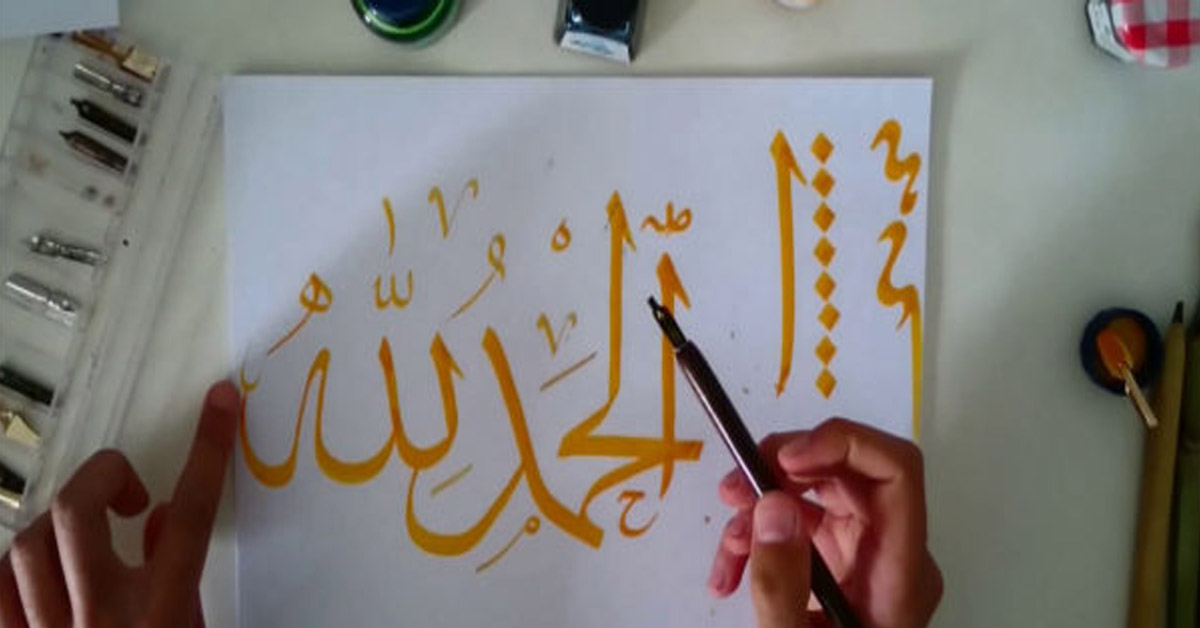 ا ٱلْحَمْدُ لِلّٰه